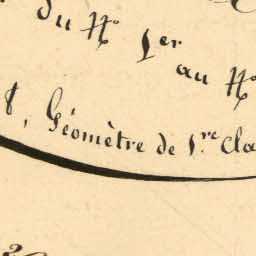 du N.º 1er
au N.º
, Géomètre de 1.re Cla